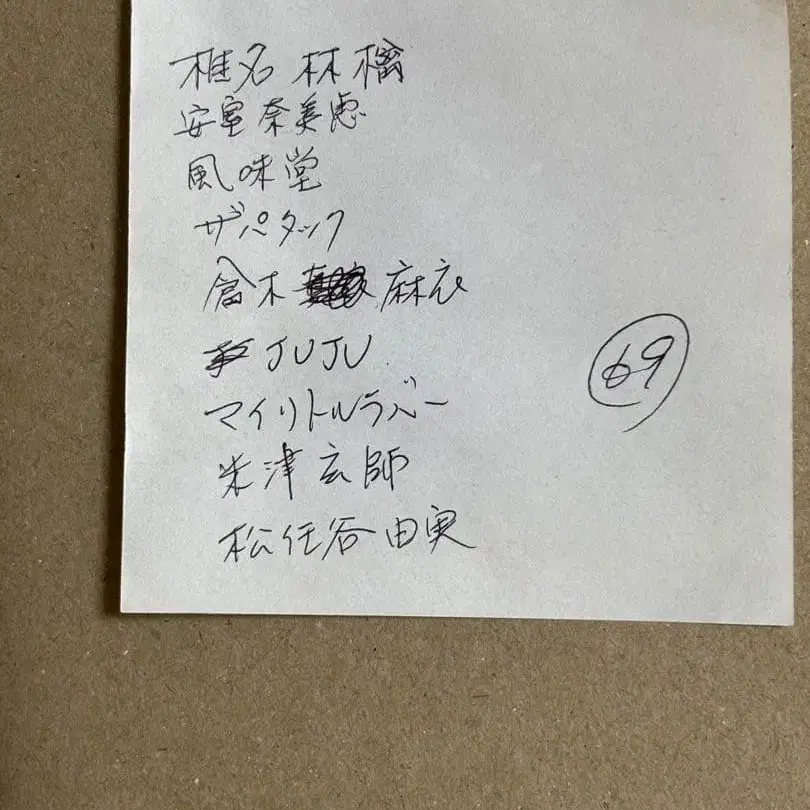 椎名林檎
安室奈美恵
風味堂
ザパタック
倉木 麻衣
JUJU
マイリトルラバー
米津玄師
松任谷由実
69